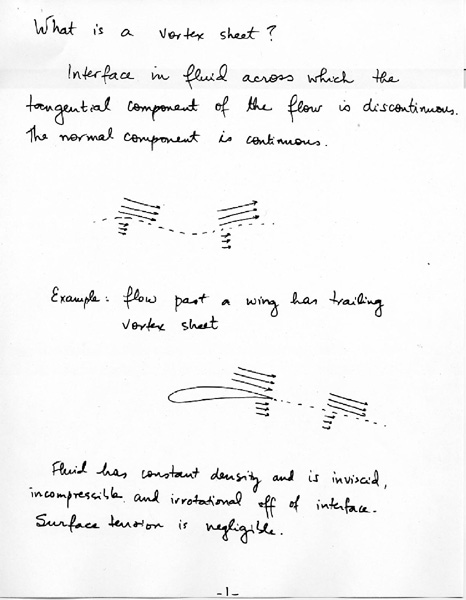 What is a vortex sheet?
Interface in fluid across which the
tangential component of the flow is discontinuous.
The normal component is continuous.
Example: flow past a wing has trailing
vortex sheet
Fluid has constant density and is inviscid,
incompressible and irrotational off of interface.
Surface tension is negligible.
-1-